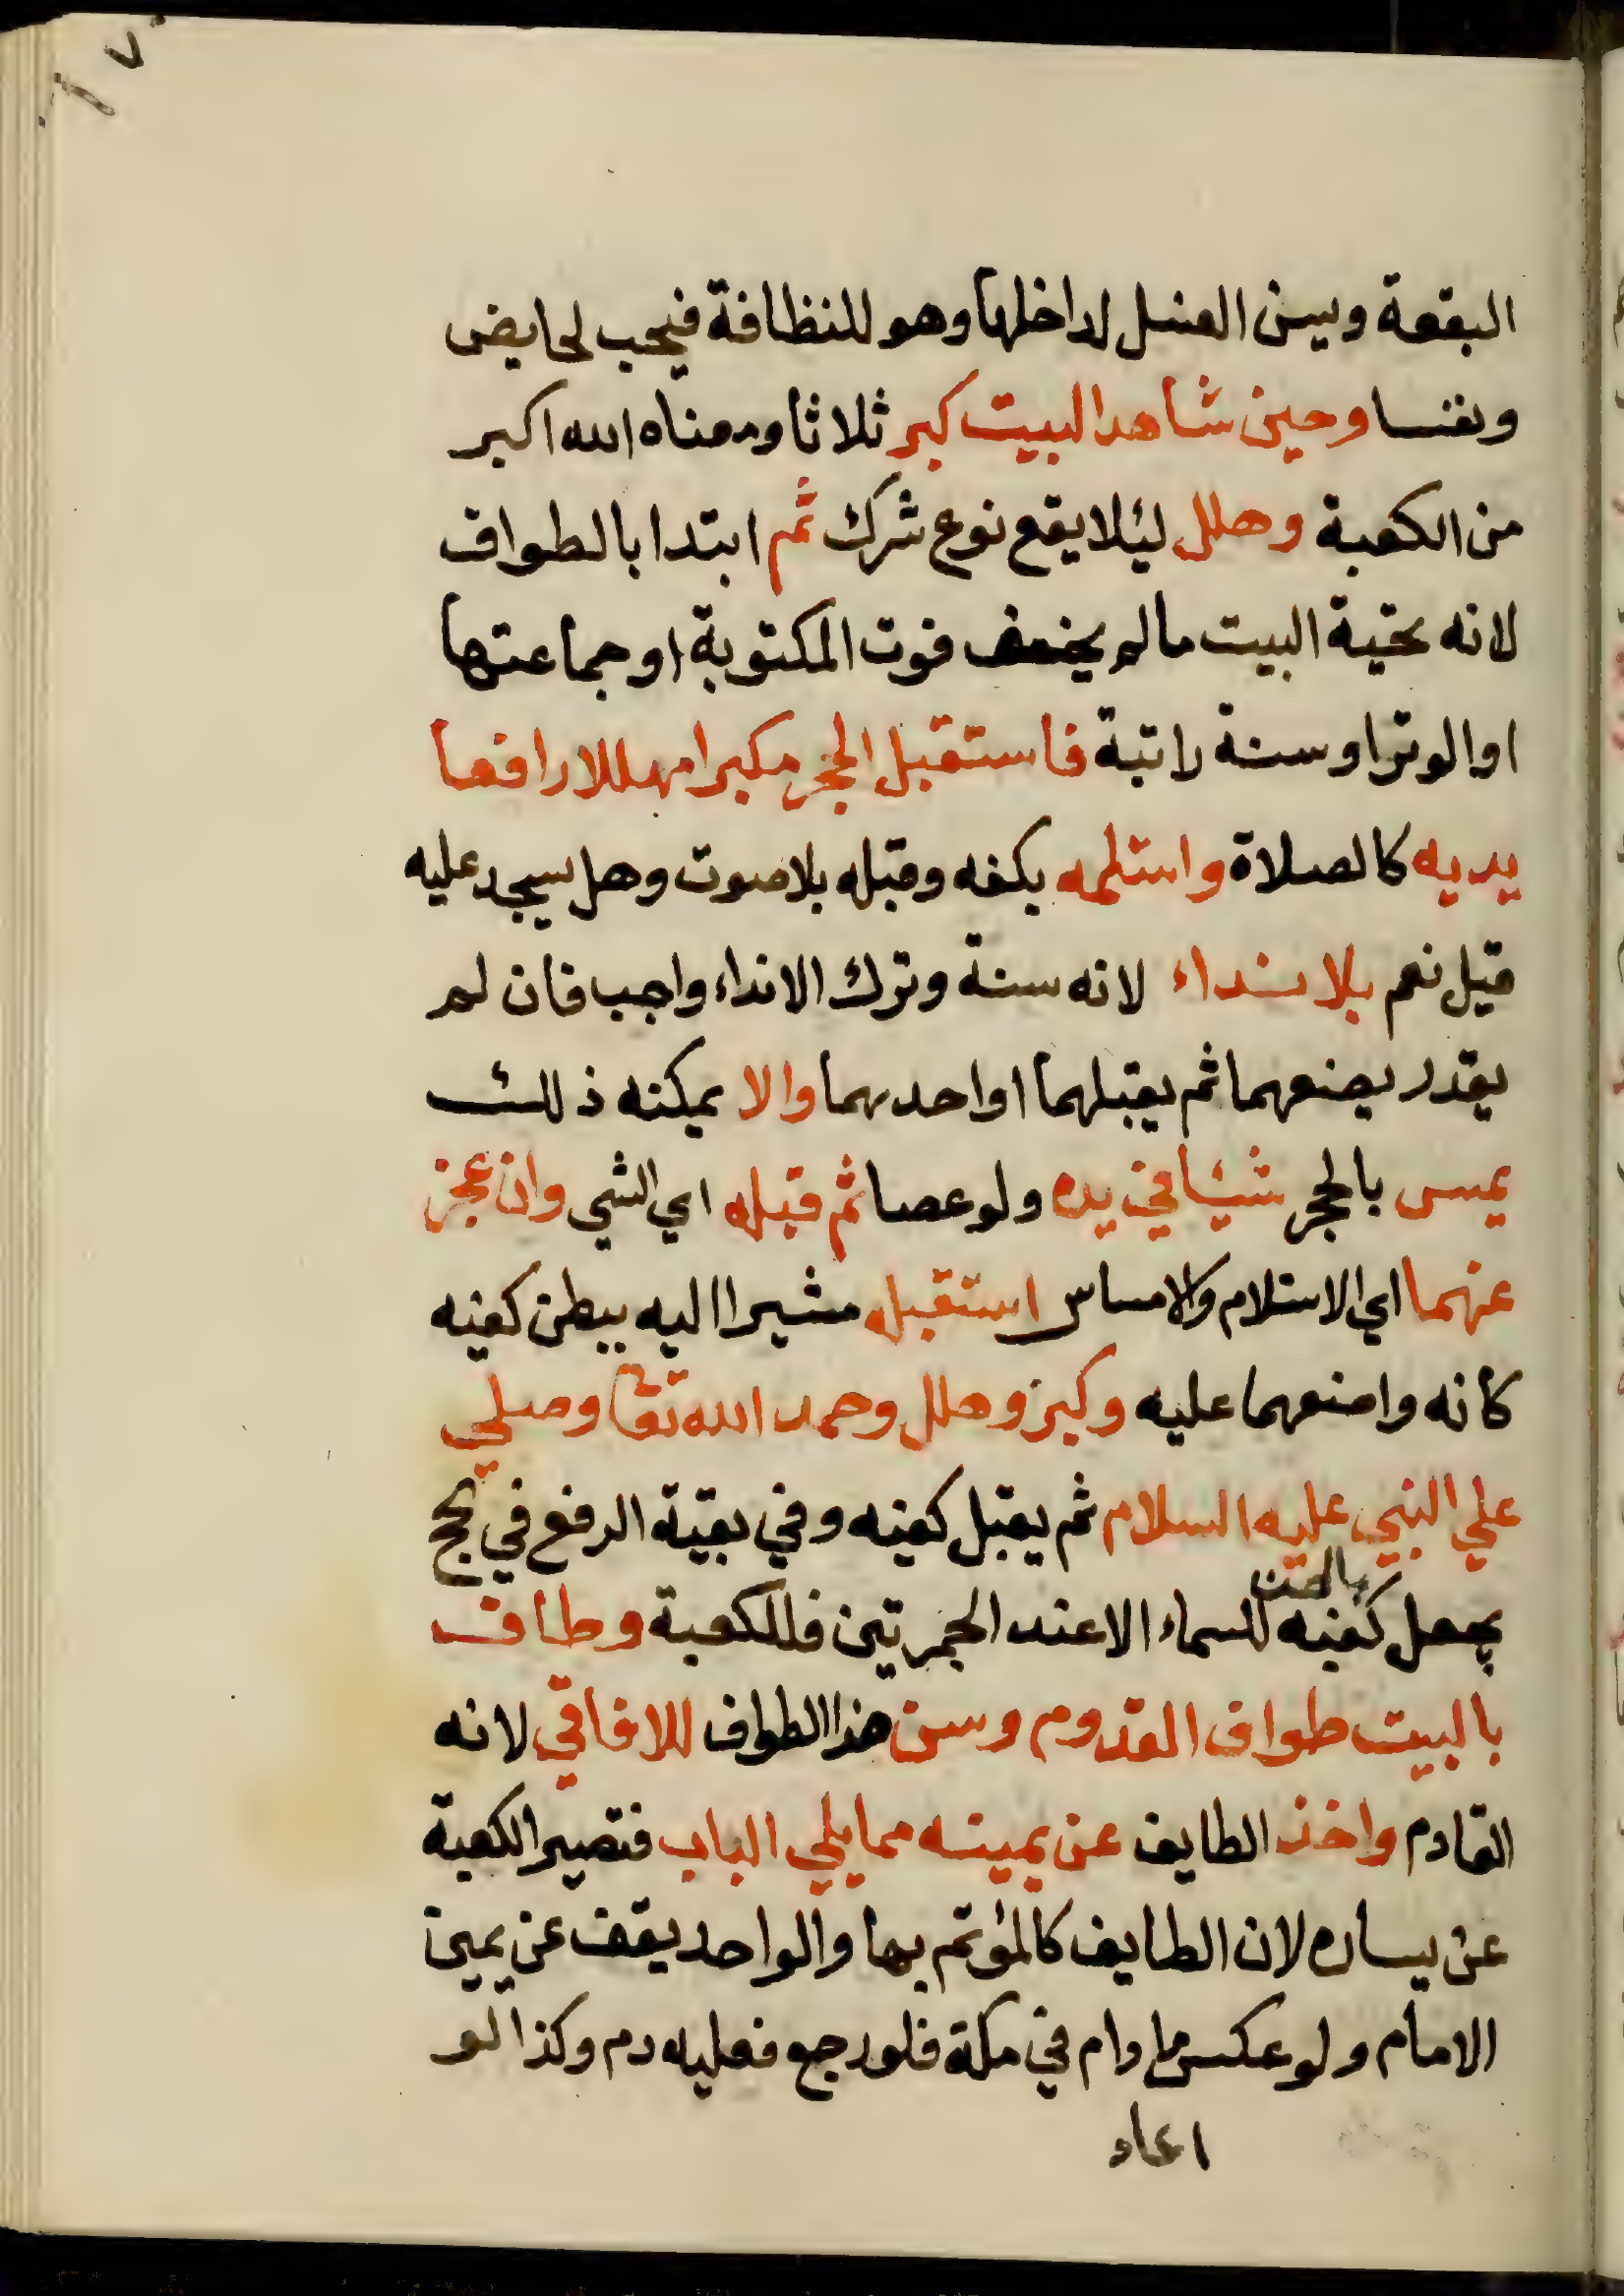 ٧٠
البقعة ويسن الغسل لداخلها وهو للنظافة فيحب لحايض
ونفسا وحين شاهد البيت كبر ثلاثا ومعناه الله اكبر
من الكعبة وهلل ليئلا يقع نوع شرك ثم ابتدا بالطواف
لانه تحية البيت ما لم يخف فوت المكتوبة او جماعتها
او الوتر او سنة راتبة فاستقبل الحجر مكبرا مهللا رافعا
يديه كالصلاة واستلمه بكفه وقبله بلا صوت وهل يسجد عليه
قيل نعم بلا ايذاء لانه سنة وترك الايذاء واجب فان لم
يقدر يضعهما ثم يقبلهما او احديهما والا يمكنه ذلك
يمس بالحجر شيئا في يده ولو عصا ثم قبله اي الشي وان عجز
عنهما اي الاستلام والامساس استقبله مشيرا اليه ببطن كفيه
كانه واضعهما عليه وكبر وهلل وحمد الله تعا وصلي
علي النبي عليه السلام ثم يقبل كفيه وفي بقية الرفع في الحج
يجعل كفيه للسماء الا عند الجمرتين فللكعبة وطاف
بالبيت طواف القدوم وسن هذا الطواف للافاقي لانه
القادم واخذ الطايف عن يمينه مما يلي الباب فتصير الكعبة
عن يساره لان الطايف كالمؤتم بها والواحد يقف عن يمين
الامام ولو عكس ما دام في مكة فلو رجع فعليه دم وكذا لو
اعاد